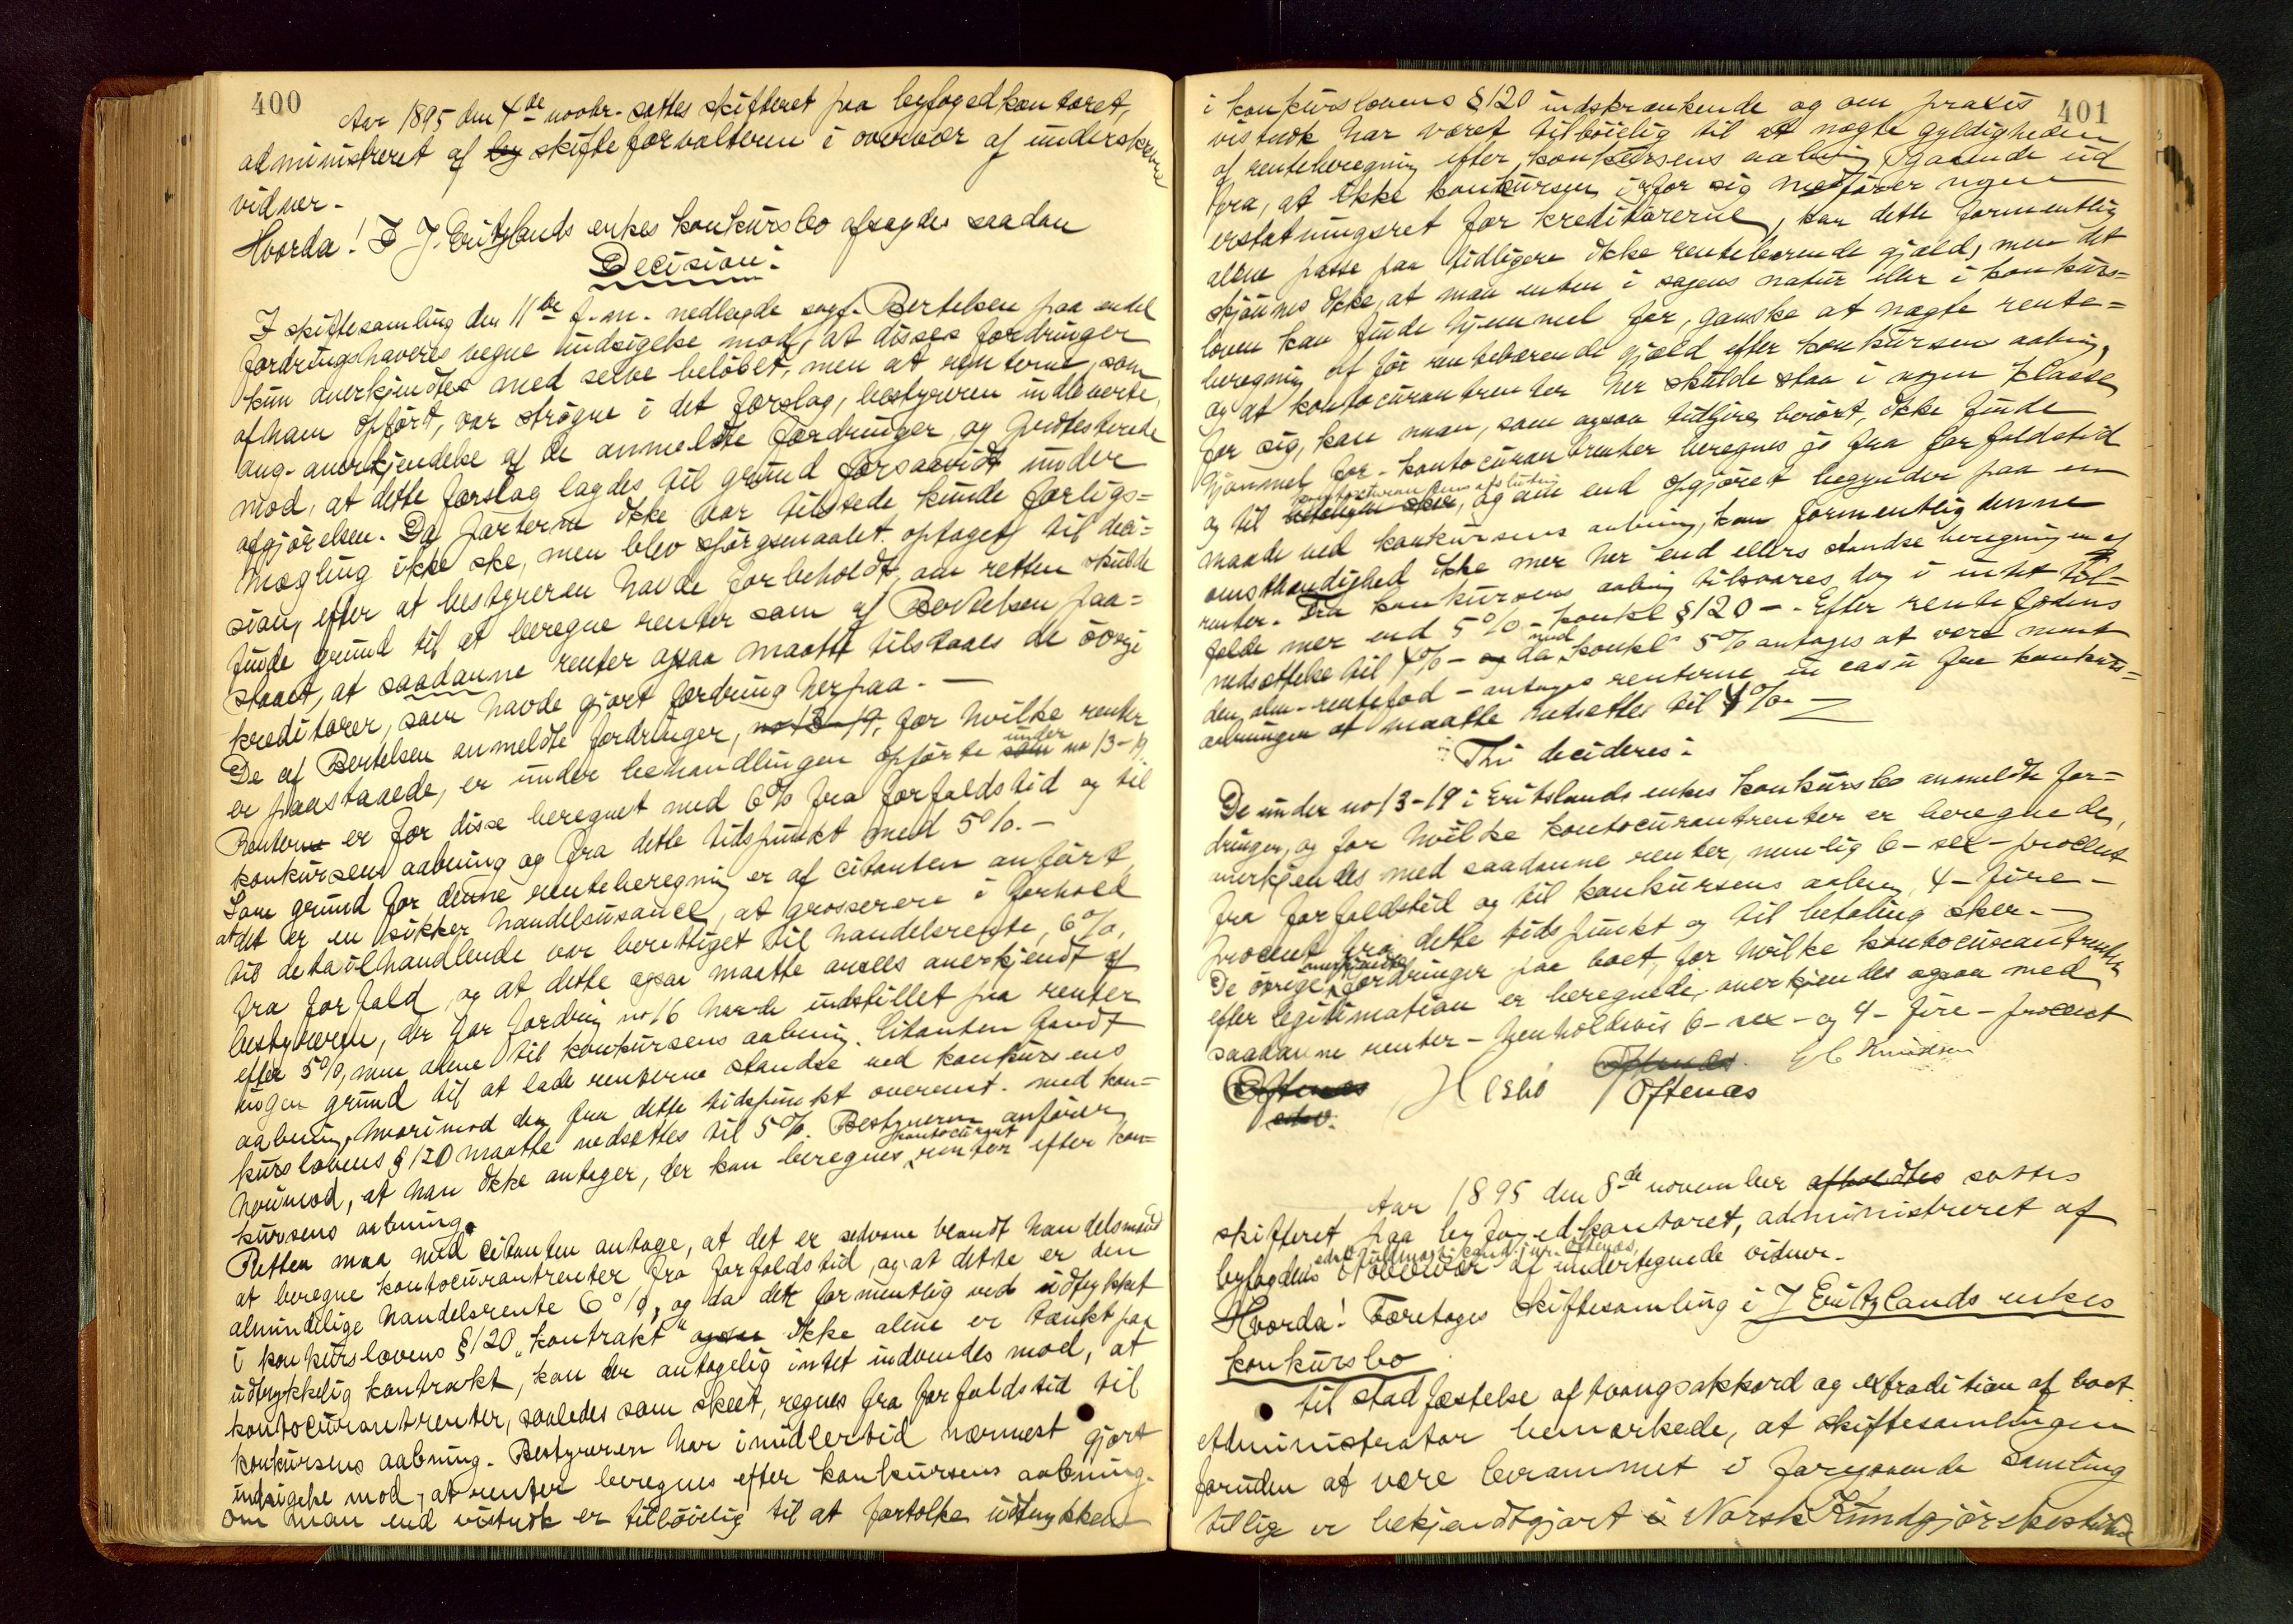 400
Aar 1895 den 4de novbr. sattes skifteret paa byfogedkontoret,
administreret af skifteforvalteren i overvær af underskrevne
vidner.
Hvorda! I J. Eritzlands enkes konkursbo afsagdes saadan
Decision:
I skiftesamling den 11te f.m. nedlagde sagf. Bertelsen paa endel
fordringshaveres vegne indsigelse mod, at disses fordringer
kun anerkjendtes med selve beløbet, men at renterne, som
af ham opført, var strøgne i det forslag, bestyreren indleverte
ang. anerkjendelse af de anmeldte fordringer og protesterede
mod, at dette forslag lagdes til grund forsaavidt under
afgjørelsen. Da parterne ikke var tilstede, kunde forligs=
mægling ikke ske, men blev spørgsmaalet optaget til deci=
sion, efter at bestyreren havde forbeholdt, om retten skulde
finde grund til at beregne renter som af Bertelsen paa=
staaet, at saadanne renter ogsaa maatte tilstaaes de øvrige
kreditorer, som havde gjort fordring herpaa. —
De af Bertelsen anmeldte fordringer, no 13-19, for hvilke renter
er paastaaede, er under behandlingen opførte under no 13-19.
Renterne er for disse beregnet med 6% fra forfaldstid og til
konkursens aabning og fra dette tidspunkt med 5%. —
Som grund for denne renteberegning er af citanten anført,
at det er en sikker handelsusance, at grosserere i forhold
til detailhandlende var berettiget til handelsrente, 6%,
fra forfald, og at dette ogsaa maatte ansees anerkjendt af
bestyreren, der for fordring no 16 havde indstillet paa renter
efter 5%, men alene til konkursens aabning. Citanten fandt
ingen grund til at lade renterne standse ved konkursens
aabning, hvorimod den fra dette tidspunkt overenst. med kon=
kurslovens § 120 maatte nedsættes til 5%. Bestyreren anfører
kontocurant
herimod, at han ikke antager, der kan beregnes renter efter kon=
kursens aabning.
Retten maa med citanten antage, at det er sedvane blandt handelsmænd
at beregne kontocurantrenter fra forfaldstid, og at dette er den
almindelige handelsrente 6%, og da det formentlig ved udtrykket
i konkurslovens § 120 „kontrakt" ogsaa ikke alene er tænkt paa
udtrykkelig kontrakt, kan der antagelig intet indvendes mod, at
kontocurantrenter, saaledes som skeet, regnes fra forfaldstid til
konkursens aabning. Bestyreren har imidlertid nærmest gjort
indsigelse mod, at renter beregnes efter konkursens aabning.
Om man end vistnok er tilbøielig til at fortolke udtrykkene
401
i konkurslovens § 120 indskrænkende og om praxis
vistnok har været tilbøielig til at nægte gyldigheden
af renteberegning efter konkursens aabning, gaaende ud
fra, at ikke konkursen i og for sig medfører nogen
erstatningsret for kreditorerne, kan dette formentlig
alene passe paa tidligere ikke rentebærende gjæld, men det
skjønnes ikke, at man enten i sagens natur eller i konkurs=
loven kan finde hjemmel for, ganske at nægte rente=
beregning af før rentebærende gjæld efter konkursens aabning,
og at kontocurantrenter her skulde staa i nogen klasse
for sig, kan man, som ogsaa tidligere berørt, ikke finde
hjemmel for. Kontocurantrenter beregnes jo fra forfaldstid
kontocurantens afslutning
og til betaling sker, og om end opgjøret begynder paa en
maade ved konkursens aabning, kan formentlig denne
omstændighed ikke mer her end ellers standse beregningen af
renter. Fra konkursens aabning tilsvares dog i intet til=
fælde mer end 5% - konkl § 120 -. Efter rentefodens
nedsættelse til 4% - og da med konkl 5% antages at være ment
den alm. rentefod - antages renterne in casu fra konkurs=
aabningen at maatte nedsættes til 4%. —
Thi decideres:
De under no 13-19 i Eritslands enkes konkursbo anmeldte for=
dringer, og for hvilke kontocurantrenter er beregnede,
anerkjendes med saadanne renter, nemlig 6 - sex - procent
fra forfaldstid og til konkursens aabning, 4 - fire -
procent fra dette tidspunkt og til betaling sker. —
anerkjendte
De øvrige fordringer paa boet, for hvilke kontocurantrenter
efter legitimation er beregnede, anerkjendes ogsaa med
saadanne renter - henholdsvis 6 - sex - og 4 - fire - procent
Oftenæs Hesbö Oftenæs E C Knudsen
edsv. Oftenæs
Aar 1895 den 8de november afholdtes sattes
skifteret paa byfogedkontoret, administreret af
edsv. fuldmægtig cand. jur. Oftenæs,
byfogdens i overvær af undertegnede vidner.
Hvorda! Foretoges skiftesamling i J Eritzlands enkes
konkursbo
til stadfæstelse af tvangsakkord og extradition af boet.
Administrator bemærkede, at skiftesamlingen
foruden at være berammet i foregaaende samling
tillige er bekjendtgjort i Norsk Kundgjørelsestidende